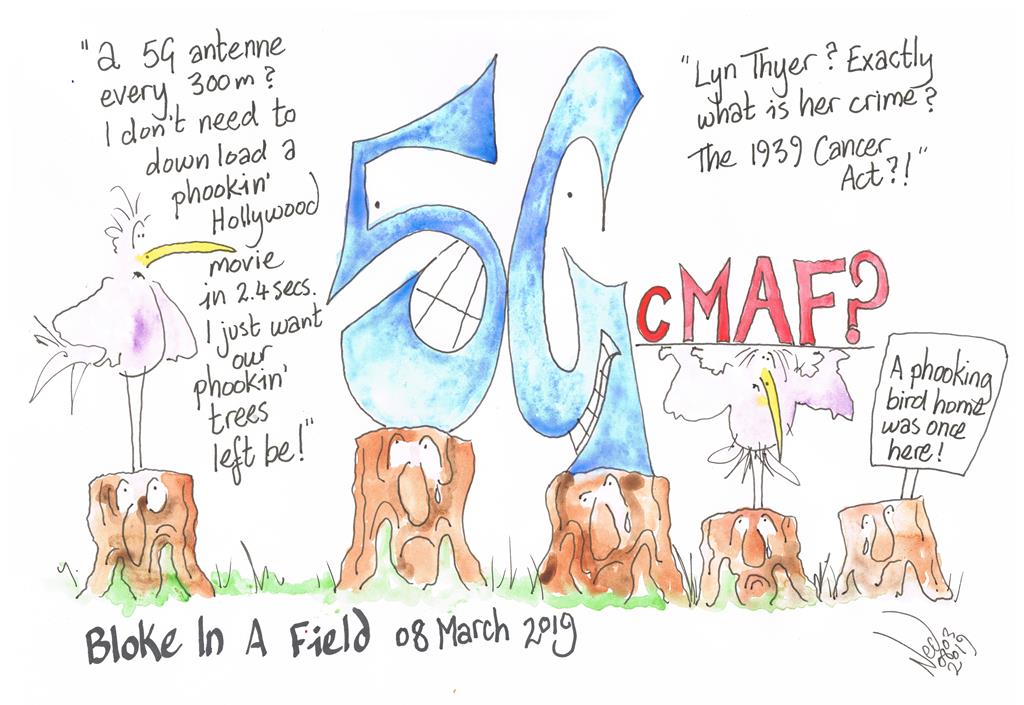 "a 5G antenne
every 300m?
I don't need to
download a
phookin'
Hollywood
movie
in 2.4 secs.
I just want
our
phookin'
trees
left be!"
5G
"Lyn Thyer? Exactly
what is her crime?
The 1939 Cancer
Act?!"
cMAF?
A phooking
bird home
was once
here!
Bloke In A Field 08 March 2019
0803
2019